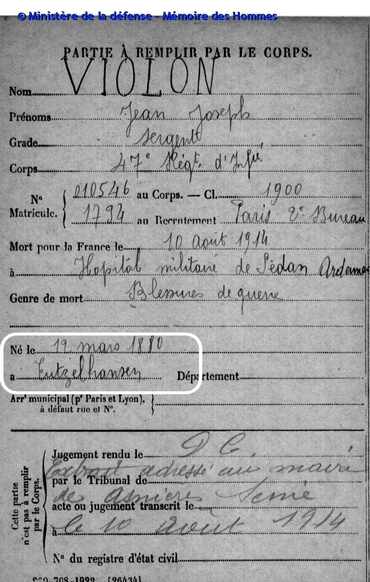 © Ministère de la défense - Mémoire des Hommes
PARTIE À REMPLIR PAR LE CORPS.
Nom VIOLON
Prénoms Jean Joseph
Grade Sergent
Corps 47e Régt. d'Infie
N° Matricule. 010546 au Corps. — Cl. 1900
1794 au Recrutement Paris 2e Bureau
Mort pour la France le 10 Août 1914
à Hopital militaire de Sédan Ardennes
Genre de mort Blessures de guerre
Né le 19 mars 1880
à Eutzelhansen Département
Arrt municipal (pr Paris et Lyon),
à défaut rue et N°.
Cette partie n'est pas à remplir par le Corps.
Jugement rendu le D C
Extrait adressé au maire
par le Tribunal de
de Asnieres Seine
acte ou jugement transcrit le
à le 10 août 1914
N° du registre d'état civil